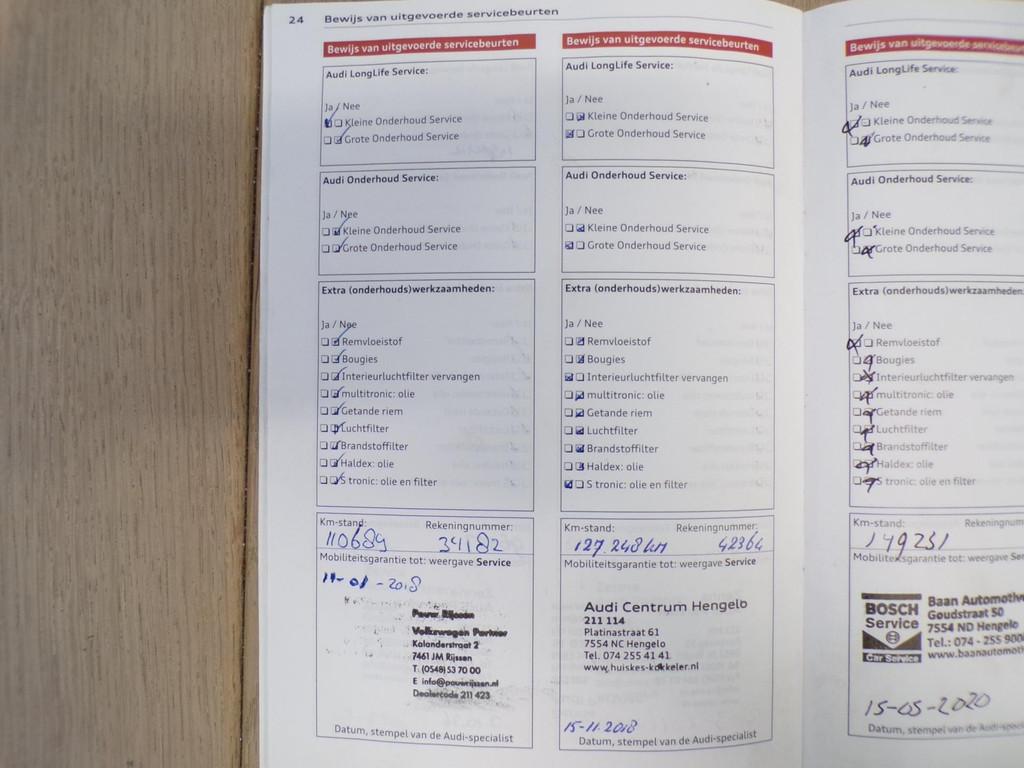 24 Bewijs van uitgevoerde servicebeurten
Bewijs van uitgevoerde servicebeurten
Audi LongLife Service:
Ja / Nee
Kleine Onderhoud Service
Grote Onderhoud Service
Audi Onderhoud Service:
Ja / Nee
Kleine Onderhoud Service
Grote Onderhoud Service
Extra (onderhouds)werkzaamheden:
Ja / Nee
Remvloeistof
Bougies
Interieurluchtfilter vervangen
multitronic: olie
Getande riem
Luchtfilter
Brandstoffilter
Haldex: olie
S tronic: olie en filter
Km-stand: Rekeningnummer:
110689 34182
Mobiliteitsgarantie tot: weergave Service
11-01-2018
Volkswagen Partner
Kalanderstraat 2
7461 JM Rijssen
T. (0548) 53 70 00
E info@pouwrijssen.nl
Dealercode 211 423
Datum, stempel van de Audi-specialist
Bewijs van uitgevoerde servicebeurten
Audi LongLife Service:
Ja / Nee
Kleine Onderhoud Service
Grote Onderhoud Service
Audi Onderhoud Service:
Ja / Nee
Kleine Onderhoud Service
Grote Onderhoud Service
Extra (onderhouds)werkzaamheden:
Ja / Nee
Remvloeistof
Bougies
Interieurluchtfilter vervangen
multitronic: olie
Getande riem
Luchtfilter
Brandstoffilter
Haldex: olie
S tronic: olie en filter
Km-stand: Rekeningnummer:
127.248km 42364
Mobiliteitsgarantie tot: weergave Service
Audi Centrum Hengelo
211 114
Platinastraat 61
7554 NC Hengelo
Tel. 074 255 41 41
www.huiskes-kokkeler.nl
15-11-2018
Datum, stempel van de Audi-specialist
Bewijs van uitgevoerde servicebeurten
Audi LongLife Service:
Ja / Nee
Kleine Onderhoud Service
Grote Onderhoud Service
Audi Onderhoud Service:
Ja / Nee
Kleine Onderhoud Service
Grote Onderhoud Service
Extra (onderhouds)werkzaamheden:
Ja / Nee
Remvloeistof
Bougies
Interieurluchtfilter vervangen
multitronic: olie
Getande riem
Luchtfilter
Brandstoffilter
Haldex: olie
S tronic: olie en filter
Km-stand: Rekeningnum
149231
Mobiliteitsgarantie tot: weergave Se
BOSCH
Service
Car Service
Baan Automotiv
Goudstraat 50
7554 ND Hengelo
Tel.: 074 - 255 900
www.baanautomoti
15-05-2020
Datum, stempel van de Audi-spec